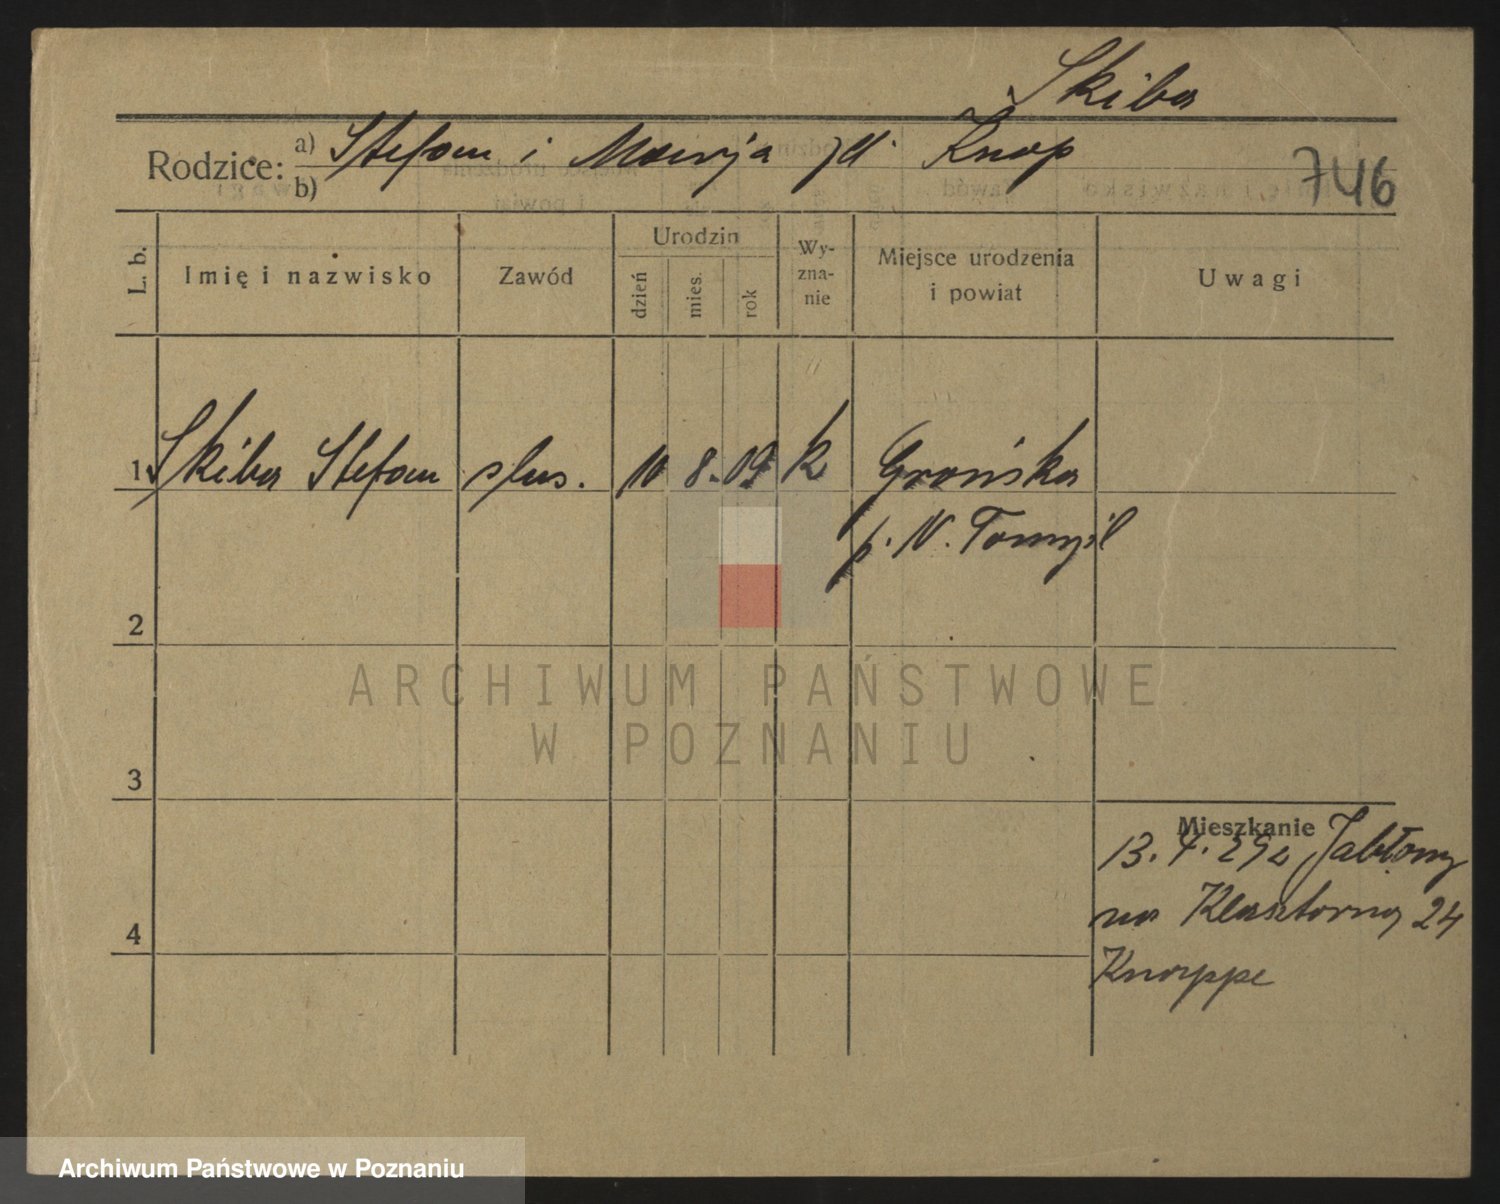 Skiba
Rodzice: a) Stefan i Marja zd. Knop
b)
746
L. b.
Imię i nazwisko
Zawód
Urodzin
dzień
mies.
rok
Wy-
zna-
nie
Miejsce urodzenia
i powiat
Uwagi
1 Skiba Stefan slus. 10 8. 09 k Grońska
p. N. Tomyśl
2
3
4
Mieszkanie
13. 4. 29 z Jabłony
na Klasztorną 24
Knappe
ARCHIWUM PAŃSTWOWE
W POZNANIU
Archiwum Państwowe w Poznaniu